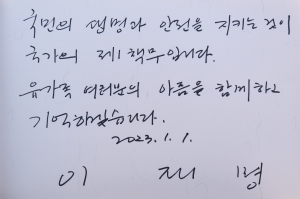 국민의 생명과 안전을 지키는 것이
국가의 제1 책무입니다.
유가족 여러분의 아픔을 함께하고
기억하겠습니다.
2023. 1. 1.
이 재 명